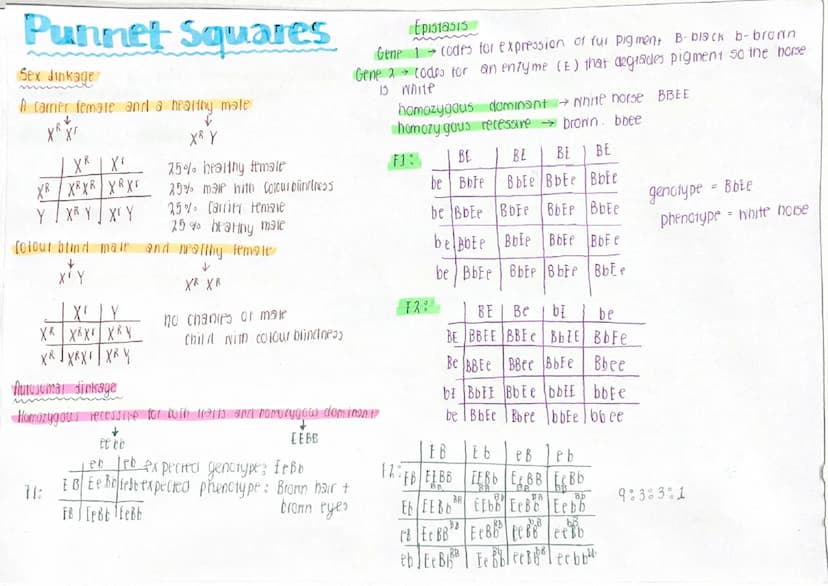 Punnet Squares
Sex linkage
A carrier female and a healthy male
X^R X^r X^R Y
X^R X^r
X^R X^RX^R X^RX^r
Y X^R Y X^r Y
25% healthy female
25% male with colourblindness
25% carrier female
25% healthy male
Colour blind male and healthy female
X^r Y X^R X^R
X^r Y
X^R X^RX^r X^R Y
X^R X^RX^r X^R Y
no chances of male
child with colourblindness
Autosomal linkage
Homozygous recessive for both traits and homozygous dominant
eebb EEBB
F1:
eb eb
EB EeBb EeBb
EB EeBb EeBb
expected genotype: EeBb
expected phenotype: Brown hair +
brown eyes
Epistasis
Gene 1 → codes for expression of fur pigment B-black b-brown
Gene 2 → codes for an enzyme (E) that degrades pigment so the horse
is white
homozygous dominant → white horse BBEE
homozygous recessive → brown. bbee
F1:
BE BE BE BE
be BbEe BbEe BbEe BbEe
be BbEe BbEe BbEe BbEe
be BbEe BbEe BbEe BbEe
be BbEe BbEe BbEe BbEe
genotype = BbEe
phenotype = white horse
F2:
BE Be bE be
BE BBEE BBEe BbEE BbEe
Be BBEe BBee BbEe Bbee
bE BbEE BbEe bbEE bbEe
be BbEe Bbee bbEe bbee
F2:
EB Eb eB eb
EB EEBB EEBb EeBB EeBb
Eb EEBb EEbb EeBb Eebb
eB EeBB EeBb eeBB eeBb
eb EeBb eebb
9:3:3:1